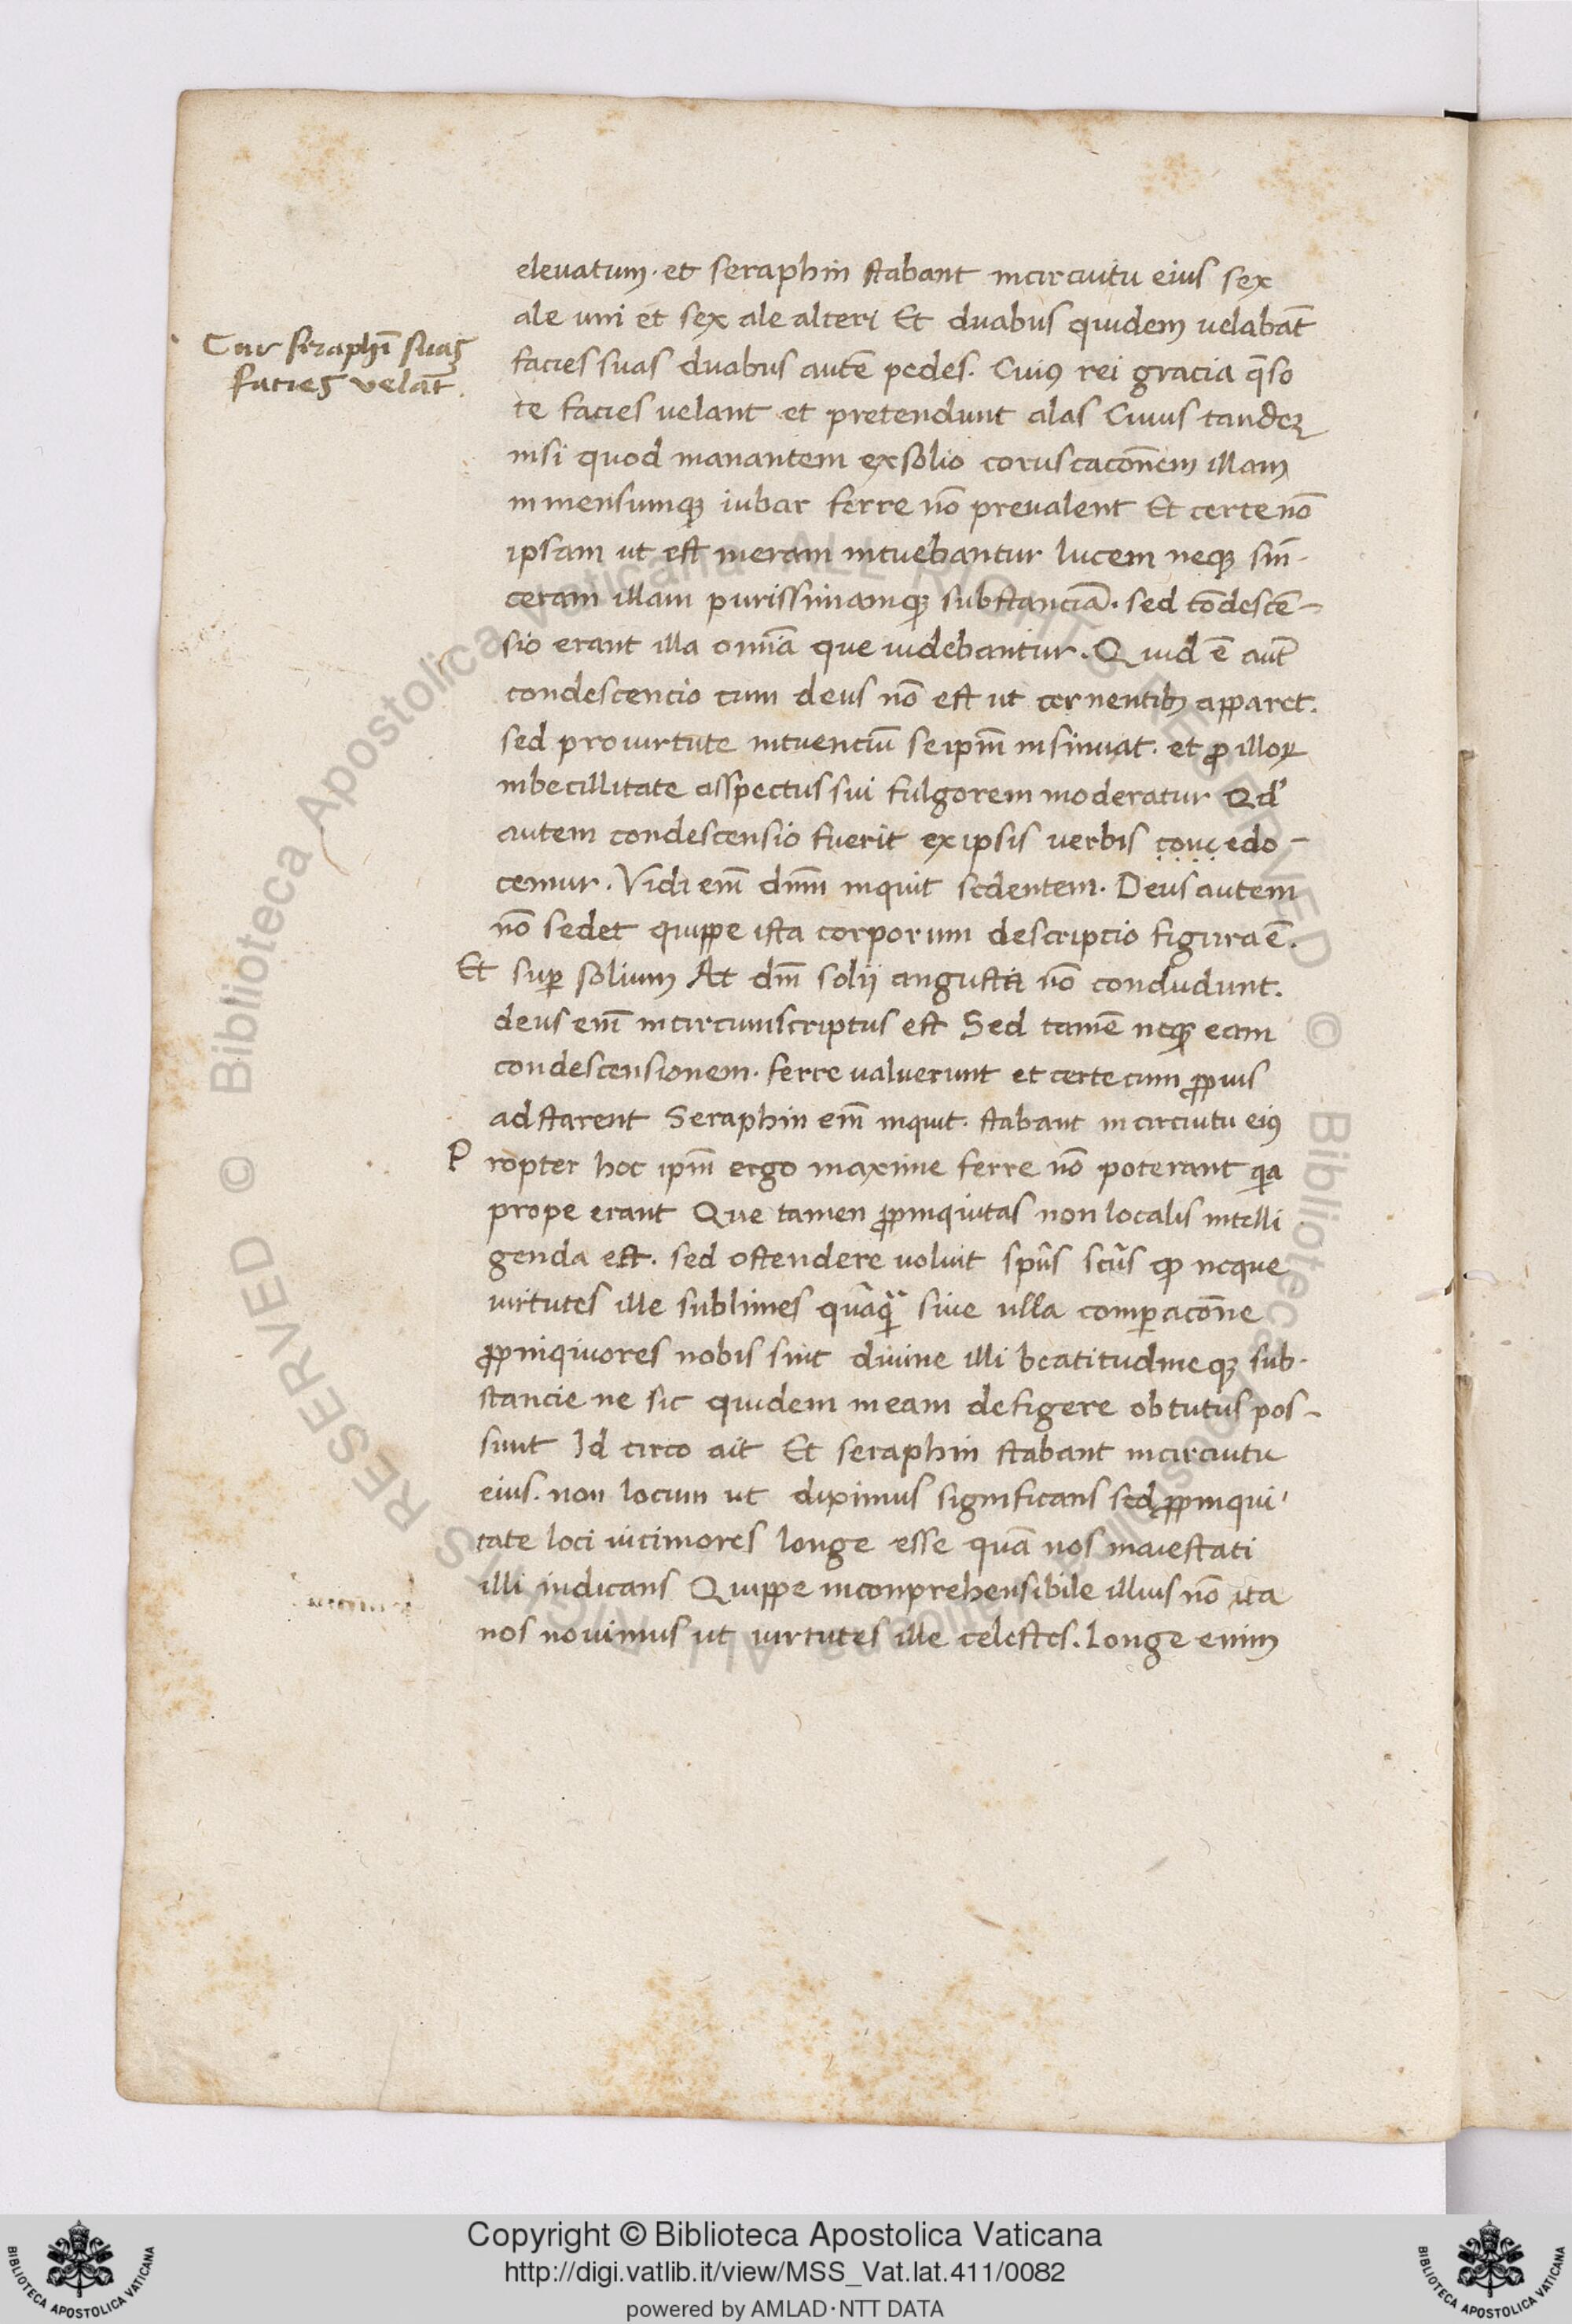 elevatum. et seraphin stabant incircuitu eius sex
ale uni et sex ale alteri Et duabus quidem uelabāt
Cur seraphī suas
facies velāt.
facies suas duabus autē pedes. Cuiꝰ rei gracia q̄so
te facies uelant et pretendunt alas Cuius tandeꝫ
nisi quod manantem exsolio coruscacōnem illam
inmensumqꝫ iubar ferre nō preualent Et certe nō
ipsam ut est meram intuebantur lucem neqꝫ sin̄-
ceram illam purissimamqꝫ substanciā. sed cōdescē-
sio erant illa omīa que uidebantur. Quid ē aut̄
condescencio cum deus nō est ut cernentibꝫ apparet.
sed prouirtute intuenciū seip̄m insinuat. et ꝓ illoꝝ
inbecillitate asspectus sui fulgorem moderatur Qd'
autem condescensio fuerit ex ipsis uerbis conc edo-
cemur. Vidi em̄ dn̄m inquit sedentem. Deus autem
nō sedet quippe ista corporum descripcio figura ē.
Et suꝑ solium At dm̄ solij angustii nō concludunt.
deus em̄ incircumscriptus est Sed tamē neqꝫ eam
condescensionem. ferre ualuerunt et certe cum ꝓpius
adstarent Seraphin em̄ inquit. stabant in circuitu eiꝰ
Propter hoc ip̄m ergo maxime ferre nō poterant qia
prope erant Que tamen ꝓpinquitas non localis intelli
genda est. sed ostendere uoluit sp̄us sc̄us ꝙ neque
uirtutes ille sublimes quāqꝫ siue ulla comꝑacōne
ꝓpinquiores nobis sint diuine illi beatitudineqꝫ sub-
stancie ne sic quidem ineam defigere obtutus pos-
sunt Id circo ait Et seraphin stabant incircuitu
eius. non locum ut diximus significans sed ꝓpinqui-
tate loci uicimores longe esse quā nos maiestati
illi indicans Quippe inconprehensibile illius nō ita
nos nouimus ut uirtutes ille celestes. Longe enim
Copyright © Biblioteca Apostolica Vaticana
http://digi.vatlib.it/view/MSS_Vat.lat.411/0082
powered by AMLAD·NTT DATA